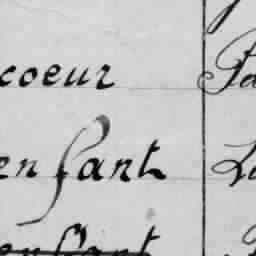 coeur Pa
enfant La
enfant